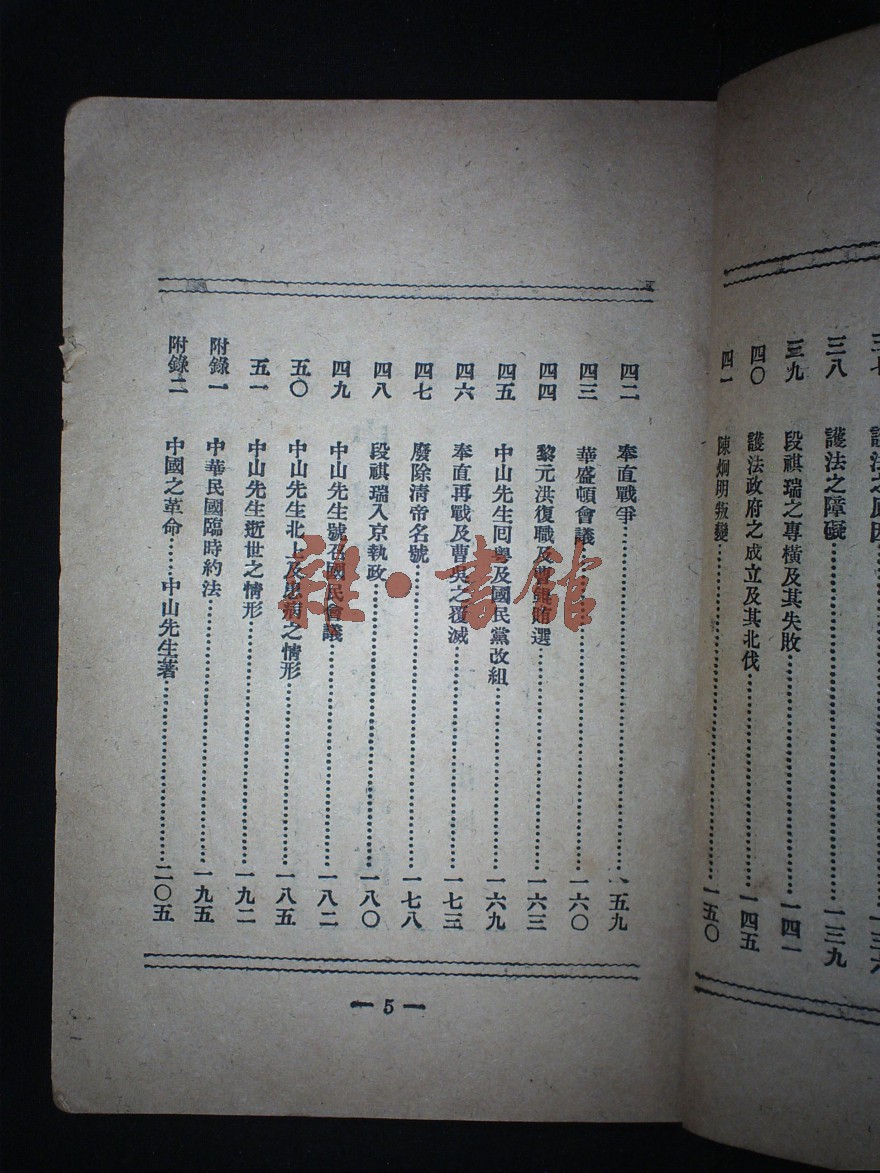 三八　護法之障礙……一三九
三九　段祺瑞之專橫及其失敗……一四一
四〇　護法政府之成立及其北伐……一四五
四一　陳烱明叛變……一五〇
四二　奉直戰爭……一五九
四三　華盛頓會議……一六〇
四四　黎元洪復職及曹錕賄選……一六三
四五　中山先生囘粵及國民黨改組……一六九
四六　奉直再戰及曹吳之覆滅……一七三
四七　廢除清帝名號……一七八
四八　段祺瑞入京執政……一八〇
四九　中山先生號召國民會議……一八二
五〇　中山先生北上及患病之情形……一八五
五一　中山先生逝世之情形……一九二
附錄一　中華民國臨時約法……一九五
附錄二　中國之革命……中山先生著……二〇五
— 5 —
雜·書館